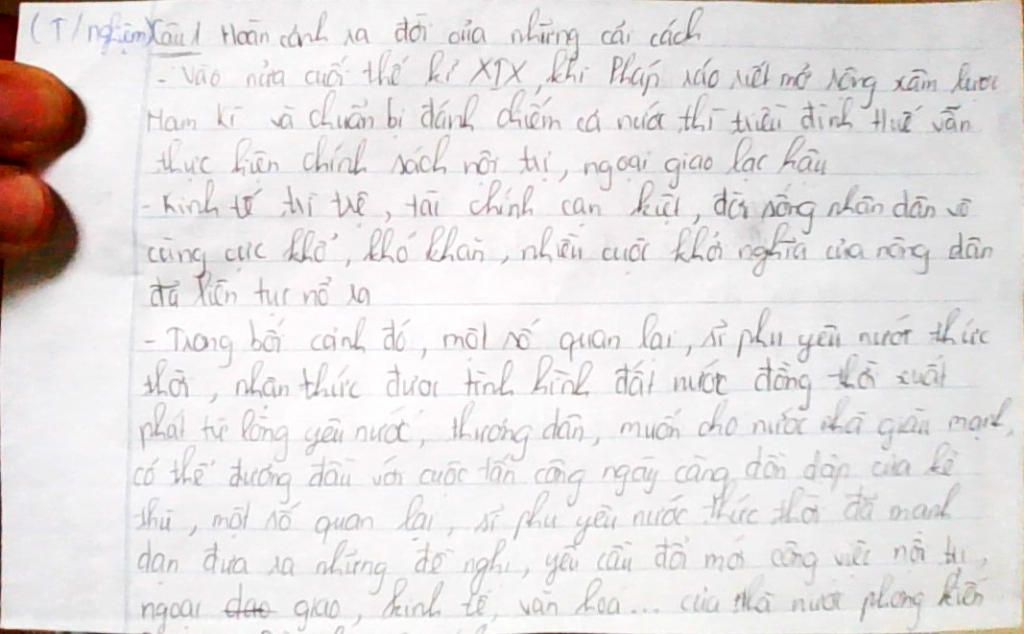 (T/nghiệm) Câu 1 Hoàn cảnh ra đời của những cải cách
- Vào nửa cuối thế kỉ XIX, khi Pháp ráo riết mở rộng xâm lược
Nam kì và chuẩn bị đánh chiếm cả nước, thì triều đình Huế vẫn
thực hiện chính sách nội trị, ngoại giao lạc hậu
- Kinh tế trì trệ, tài chính cạn kiệt, đời sống nhân dân vô
cùng cực khổ, khó khăn, nhiều cuộc khởi nghĩa của nông dân
đã liên tục nổ ra
- Trong bối cảnh đó, một số quan lại, sĩ phu yêu nước thức
thời, nhận thức được tình hình đất nước đồng thời xuất
phát từ lòng yêu nước, thương dân, muốn cho nước nhà giàu mạnh,
có thể đương đầu với cuộc tấn công ngày càng dồn dập của kẻ
thù, một số quan lại, sĩ phu yêu nước thức thời đã mạnh
dạn đưa ra những đề nghị, yêu cầu đổi mới công việc nội trị,
ngoại dao giao, kinh tế, văn hoá... của nhà nước phong kiến